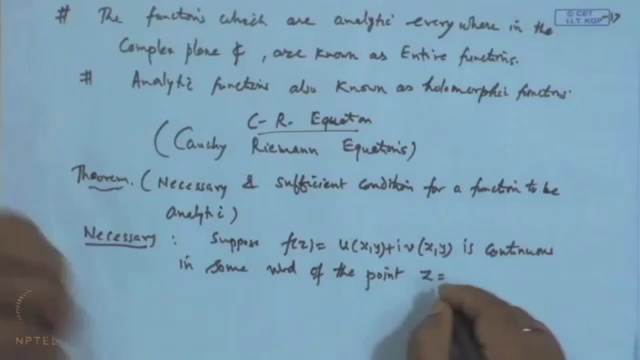 © CET
I.I.T. KGP
# The functions which are analytic every where in the
Complex plane ₵, are known as Entire functions.
# Analytic functions also known as holomorphic functions.
C-R. Equation
(Cauchy Riemann Equations)
Theorem. (Necessary & sufficient condition for a function to be
analytic)
Necessary : Suppose f(z) = u(x,y)+i v(x,y) is continuous
in some nbd of the point z=
NPTEL